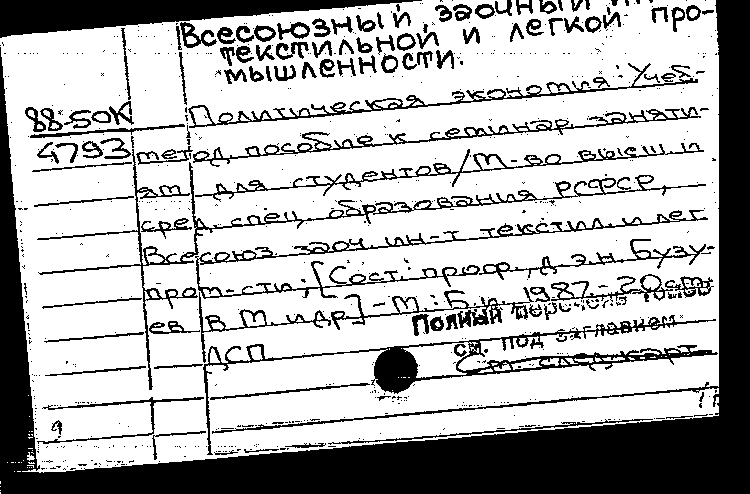 Всесоюзный заочный ин-
текстильной и легкой про-
мышленности.
88-50К
4793
Политическая экономия: Учеб-
метод. пособие к семинар. заняти-
ям для студентов/М-во высш. и
сред. спец. образования РСФСР,
Всесоюз. заоч. ин-т текстил. и лег.
пром-сти; [Сост.: проф., д.э.н. Бузу-
ев В.М. и др] - М.: Б.и., 1987-20см.
Полный перечень томов
см. под заглавием
ДСП
См. след. карт.
9